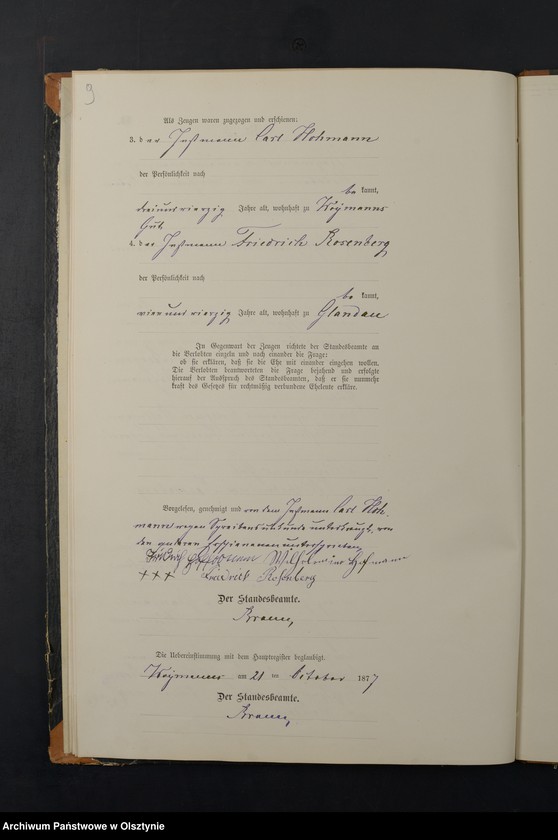 9
Als Zeugen waren zugezogen und erschienen:
3. der Instmann Carl Hohmann
der Persönlichkeit nach
be kannt,
dreiundvierzig Jahre alt, wohnhaft zu Woymanns
Gut,
4. der Instmann Friedrich Rosenberg
der Persönlichkeit nach
be kannt,
vierundvierzig Jahre alt, wohnhaft zu Glandau
In Gegenwart der Zeugen richtete der Standesbeamte an
die Verlobten einzeln und nach einander die Frage:
ob sie erklären, daß sie die Ehe mit einander eingehen wollen.
Die Verlobten beantworteten die Frage bejahend und erfolgte
hierauf der Ausspruch des Standesbeamten, daß er sie nunmehr
kraft des Gesetzes für rechtmäßig verbundene Eheleute erkläre.
Vorgelesen, genehmigt und von dem Instmann Carl Hoh-
mann wegen Schreibensunkunde unterkreuzt, von
den anderen Erschienenen unterschrieben
Wilhelmine Hohmann
+++ Friedrich Rosenberg
Der Standesbeamte.
Die Uebereinstimmung mit dem Hauptregister beglaubigt.
Woymanns am 21 ten October 1877
Der Standesbeamte.
Archiwum Państwowe w Olsztynie